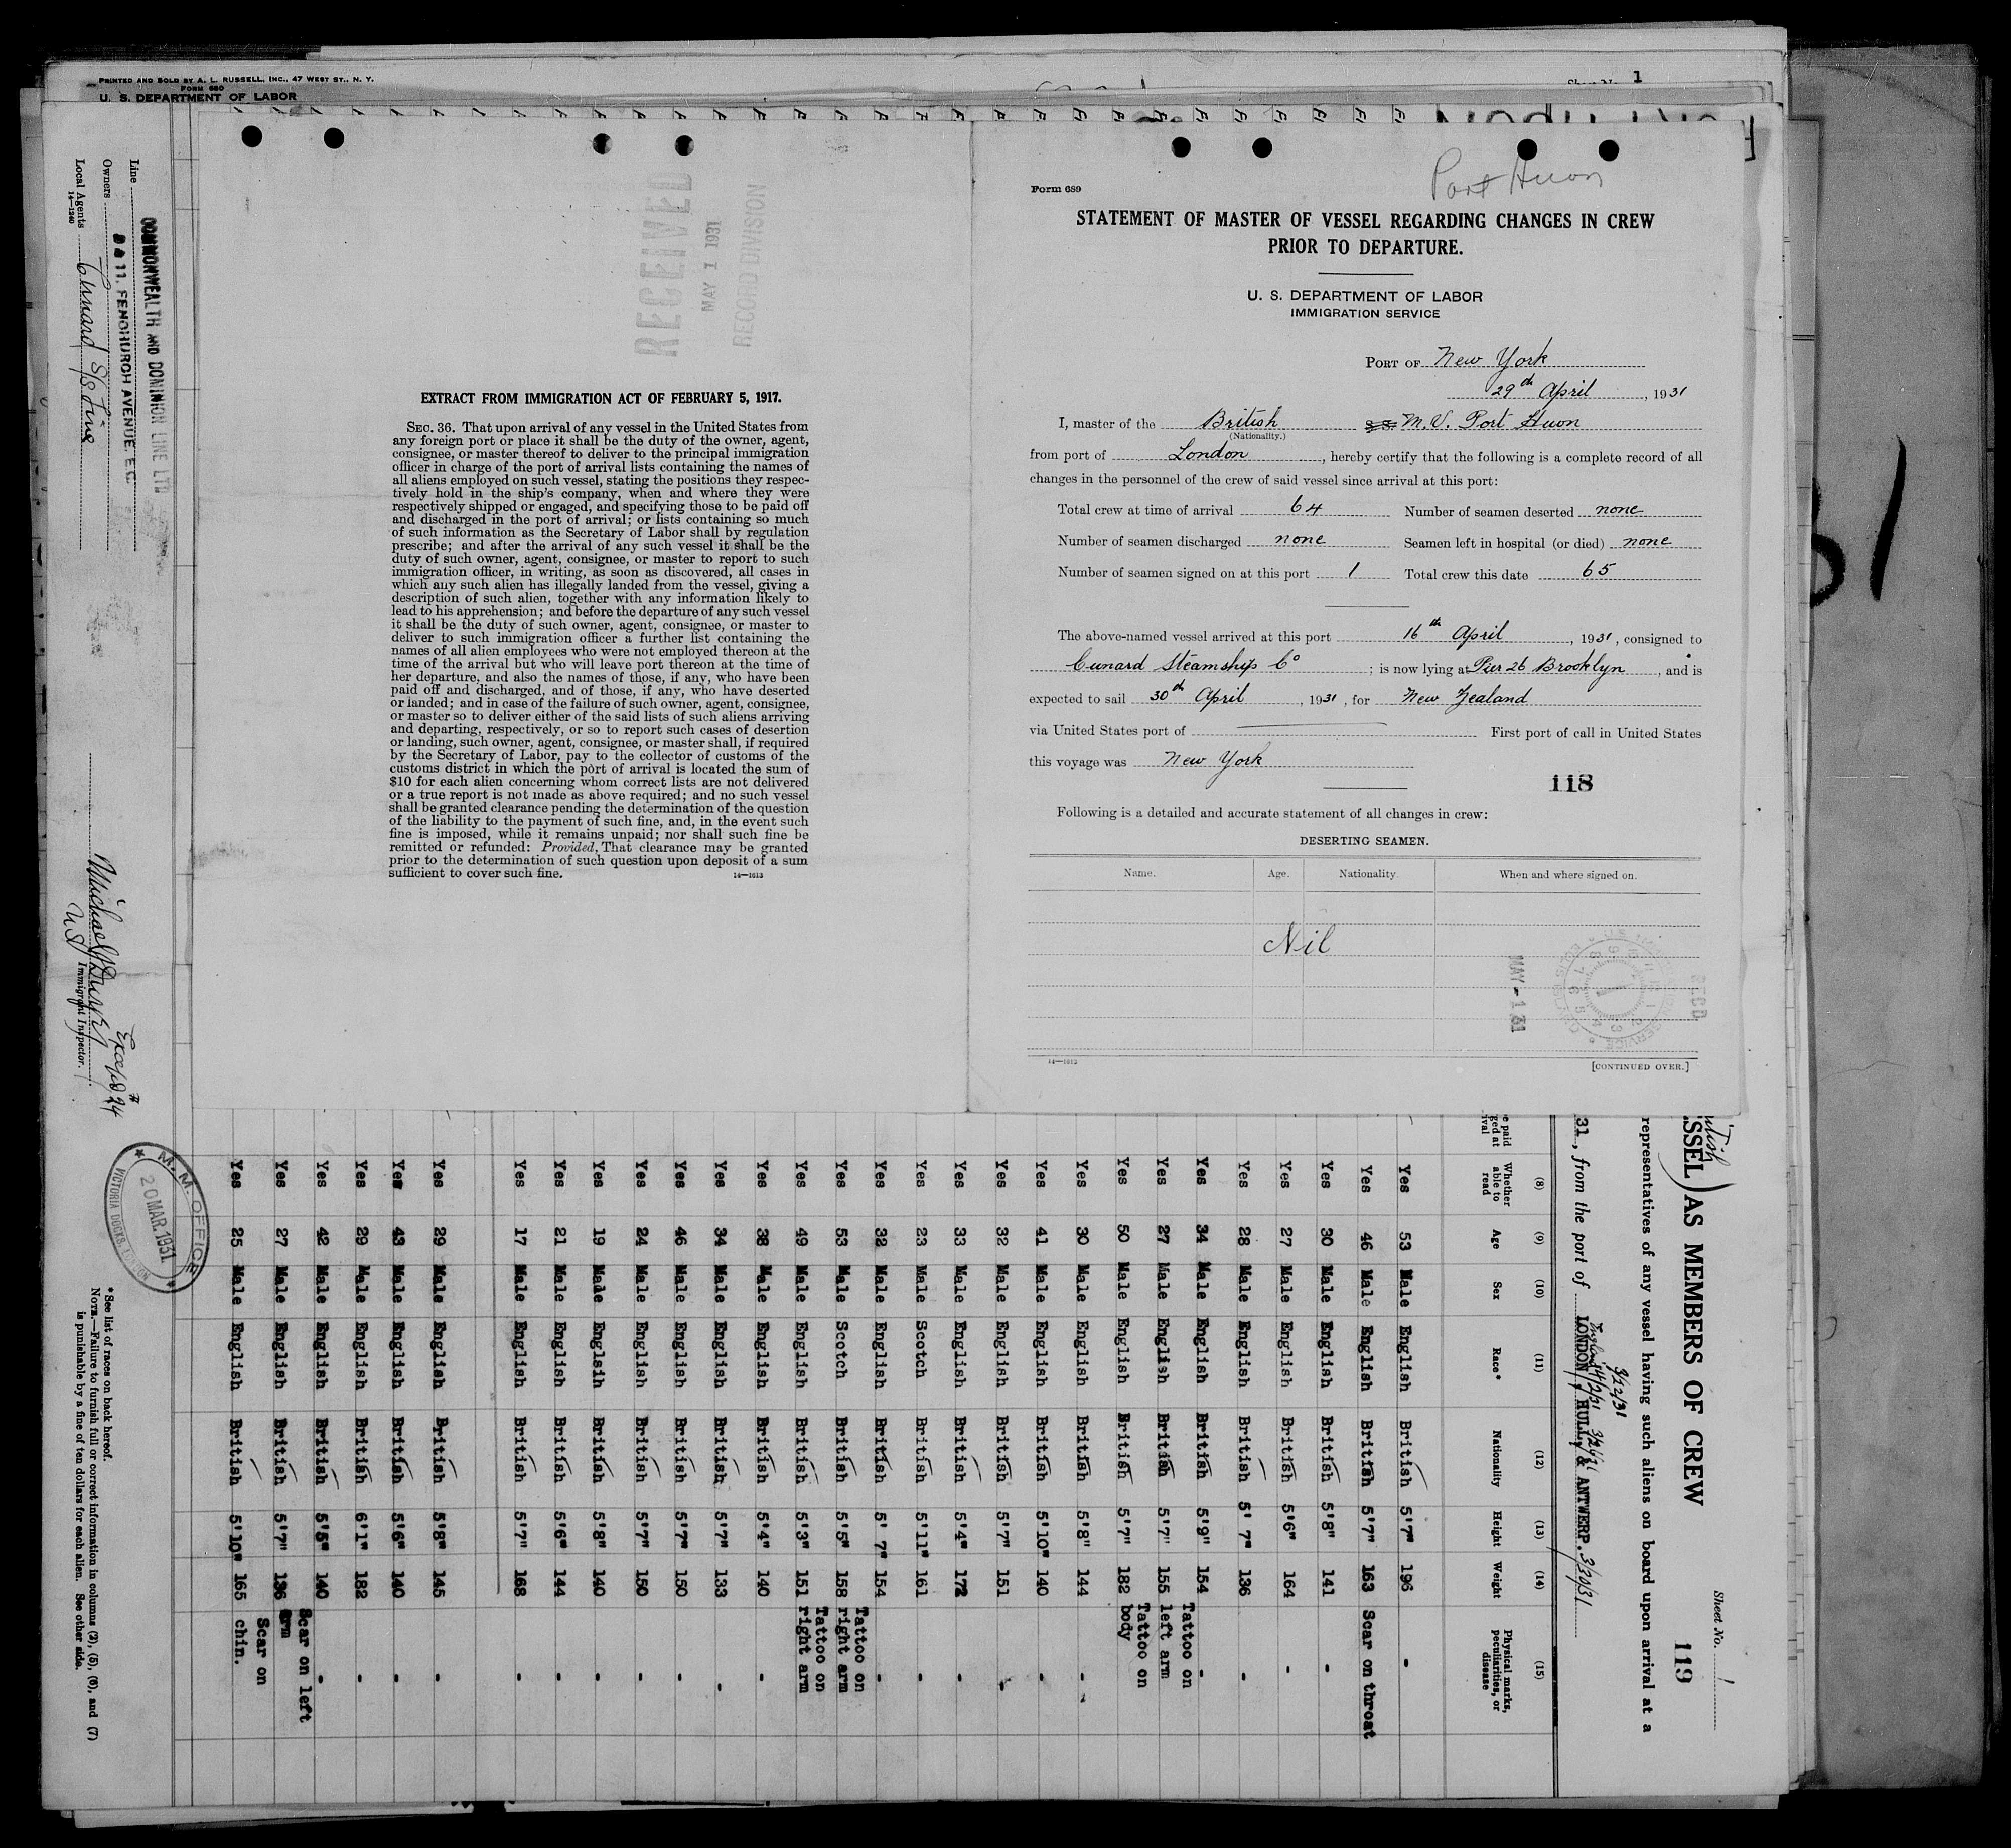 PRINTED AND SOLD BY A. L. RUSSELL, INC., 47 WEST ST., N. Y.
FORM 680
U. S. DEPARTMENT OF LABOR
1
RECEIVED
MAY 1 1931
RECORD DIVISION
EXTRACT FROM IMMIGRATION ACT OF FEBRUARY 5, 1917.
SEC. 36. That upon arrival of any vessel in the United States from
any foreign port or place it shall be the duty of the owner, agent,
consignee, or master thereof to deliver to the principal immigration
officer in charge of the port of arrival lists containing the names of
all aliens employed on such vessel, stating the positions they respec-
tively hold in the ship's company, when and where they were
respectively shipped or engaged, and specifying those to be paid off
and discharged in the port of arrival; or lists containing so much
of such information as the Secretary of Labor shall by regulation
prescribe; and after the arrival of any such vessel it shall be the
duty of such owner, agent, consignee, or master to report to such
immigration officer, in writing, as soon as discovered, all cases in
which any such alien has illegally landed from the vessel, giving a
description of such alien, together with any information likely to
lead to his apprehension; and before the departure of any such vessel
it shall be the duty of such owner, agent, consignee, or master to
deliver to such immigration officer a further list containing the
names of all alien employees who were not employed thereon at the
time of the arrival but who will leave port thereon at the time of
her departure, and also the names of those, if any, who have been
paid off and discharged, and of those, if any, who have deserted
or landed; and in case of the failure of such owner, agent, consignee,
or master so to deliver either of the said lists of such aliens arriving
and departing, respectively, or so to report such cases of desertion
or landing, such owner, agent, consignee, or master shall, if required
by the Secretary of Labor, pay to the collector of customs of the
customs district in which the port of arrival is located the sum of
$10 for each alien concerning whom correct lists are not delivered
or a true report is not made as above required; and no such vessel
shall be granted clearance pending the determination of the question
of the liability to the payment of such fine, and, in the event such
fine is imposed, while it remains unpaid; nor shall such fine be
remitted or refunded: Provided, That clearance may be granted
prior to the determination of such question upon deposit of a sum
sufficient to cover such fine.
14—1613
Port Huon
Form 689
STATEMENT OF MASTER OF VESSEL REGARDING CHANGES IN CREW
PRIOR TO DEPARTURE.
U. S. DEPARTMENT OF LABOR
IMMIGRATION SERVICE
PORT OF New York
29th April, 1931
I, master of the British S.S. M.V. Port Huon
(Nationality.)
from port of London, hereby certify that the following is a complete record of all
changes in the personnel of the crew of said vessel since arrival at this port:
Total crew at time of arrival 64 Number of seamen deserted none
Number of seamen discharged none Seamen left in hospital (or died) none
Number of seamen signed on at this port 1 Total crew this date 65
The above-named vessel arrived at this port 16th April, 1931, consigned to
Cunard Steamship Co; is now lying at Pier 26 Brooklyn, and is
expected to sail 30th April, 1931, for New Zealand
via United States port of First port of call in United States
this voyage was New York
118
Following is a detailed and accurate statement of all changes in crew:
DESERTING SEAMEN.
Name. Age. Nationality. When and where signed on.
Nil
REC'D
MAY-1 31
14—1612
[CONTINUED OVER.]
Sheet No. 1
119
SSEL) AS MEMBERS OF CREW
representatives of any vessel having such aliens on board upon arrival at a
3/22/31
31, from the port of LONDON, HULL, & ANTWERP. 3/31/31
(8) (9) (10) (11) (12) (13) (14) (15)
Whether able to read Age Sex Race* Nationality Height Weight Physical marks, peculiarities, or disease
Yes 53 Male English British 5'7" 196 -
Yes 46 Male English British 5'7" 163 Scar on throat
Yes 30 Male English British 5'8" 141 -
Yes 27 Male English British 5'6" 164 -
Yes 28 Male English British 5' 7" 136 -
Yes 34 Male English British 5'9" 154 -
Yes 27 Male English British 5'7" 155 Tattoo on left arm
Yes 50 Male English British 5'7" 182 Tattoo on body
Yes 30 Male English British 5'8" 144 -
Yes 41 Male English British 5'10" 140 -
Yes 32 Male English British 5'7" 151 -
Yes 33 Male English British 5'4" 172 -
Yes 23 Male Scotch British 5'11" 161 -
Yes 32 Male English British 5' 7" 154 -
Yes 53 Male Scotch British 5'5" 158 Tattoo on right arm
Yes 49 Male English British 5'3" 151 Tattoo on right arm
Yes 38 Male English British 5'4" 140 -
Yes 34 Male English British 5'7" 133 -
Yes 46 Male English British 5'7" 150 -
Yes 24 Male English British 5'7" 150 -
Yes 19 Made Englsih British 5'8" 140 -
Yes 21 Male English British 5'6" 144 -
Yes 17 Male English British 5'7" 168 -
Yes 29 Male English British 5'8" 145 -
Yes 43 Male English British 5'6" 140 -
Yes 29 Male English British 6'1" 182 -
Yes 42 Male English British 5'5" 140 -
Yes 27 Male English British 5'7" 136 Scar on left arm
Yes 25 Male English British 5'10" 165 Scar on chin.
Line COMMONWEALTH AND DOMINION LINE LTD
Owners 9 & 11. FENCHURCH AVENUE. E.C.
Local Agents Cunard S/S Line
14—1240
Except # 24
Immigrant Inspector.
M. M. OFFICE
20 MAR. 1931
VICTORIA DOCKS, LONDON
*See list of races on back hereof.
NOTE.—Failure to furnish full or correct information in columns (2), (5), (6), and (7)
is punishable by a fine of ten dollars for each alien. See other side.